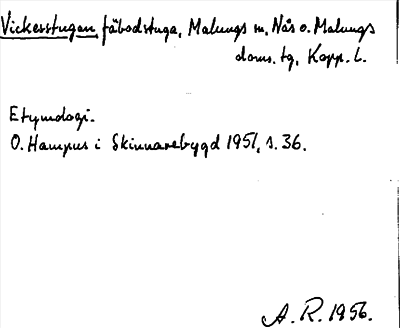 Vickesstugan, fäbodstuga, Malungs sn, Nås o. Malungs
doms. tg, Kopp. l.
Etymologi.
O. Hampus i Skinnarebygd 1951, s. 36.
A. R. 1956.